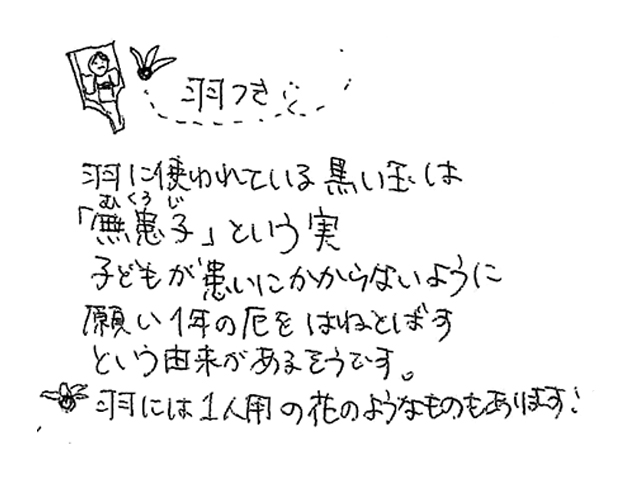 羽つき
羽に使われている黒い玉は
むくろじ
「無患子」という実
子どもが患いにかからないように
願い1年の厄をはねとばす
という由来があるそうです。
羽には1人用の花のようなものもあります!